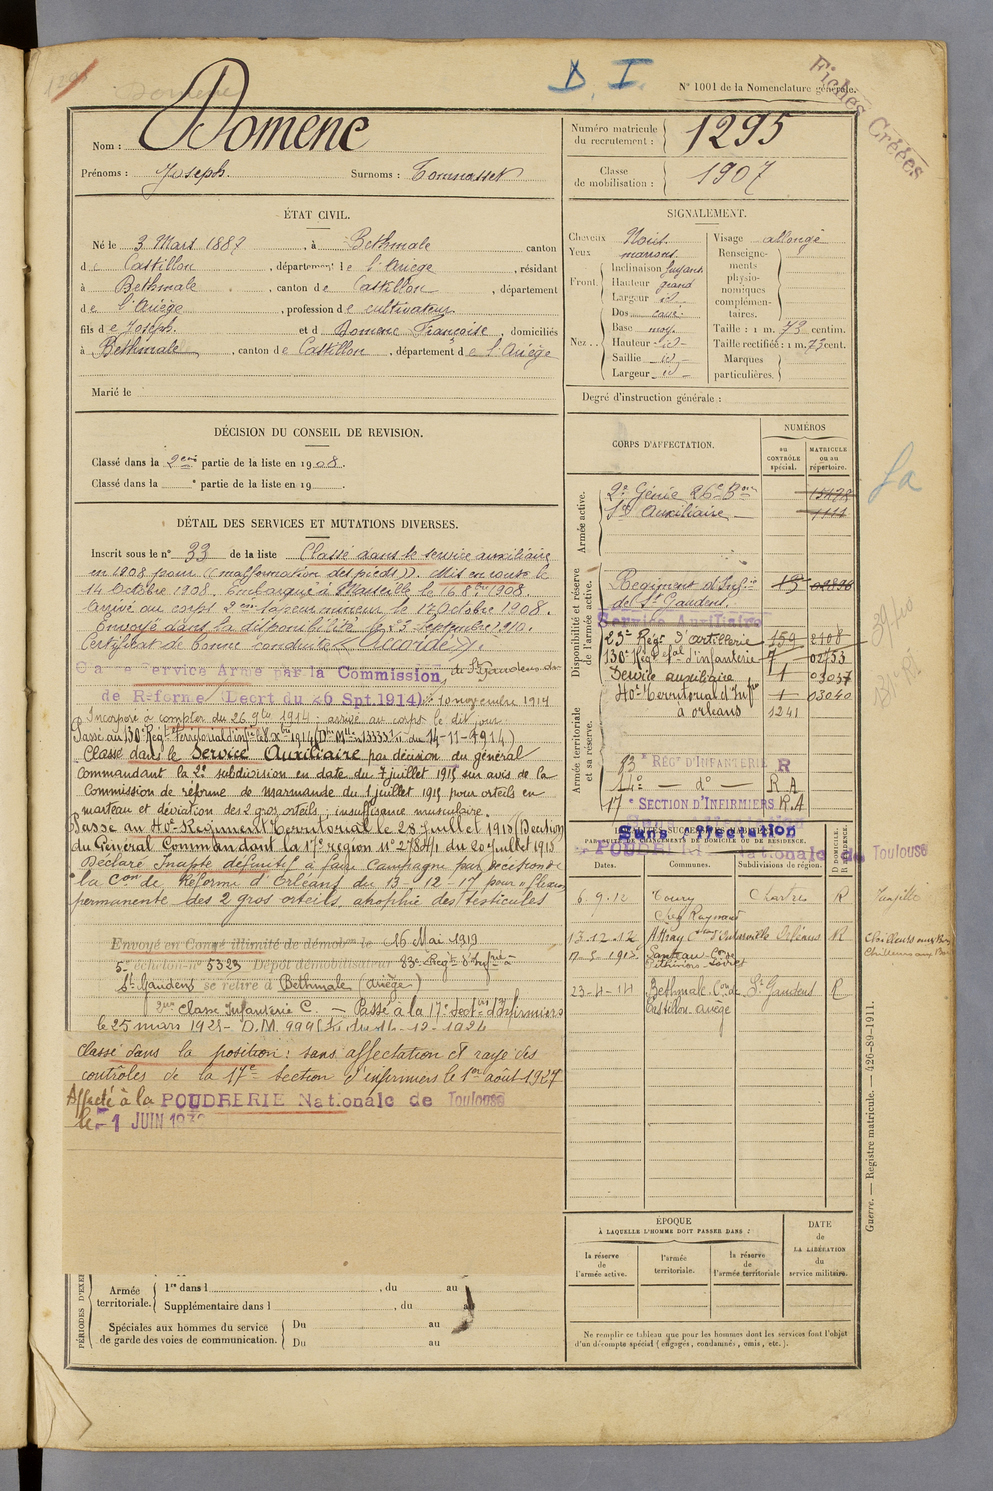 D. I.
N° 1001 de la Nomenclature générale.
Fiches Créées
Nom : Domenc
Prénoms : Joseph. Surnoms :
Numéro matricule du recrutement : 1295
Classe de mobilisation : 1907
ÉTAT CIVIL.
Né le 3 Mars 1887, à Bethmale canton
de Castillon, département de l'Ariège, résidant
à Bethmale, canton de Castillon, département
de l'Ariège, profession de cultivateur
fils de Joseph et d Domenc Françoise, domiciliés
à Bethmale, canton de Castillon, département de l'Ariège
Marié le
SIGNALEMENT.
Cheveux Noirs.
Yeux marrons.
Front. Inclinaison fuyant
Hauteur grand
Largeur id
Nez.. Dos cave
Base moy.
Hauteur id
Saillie id
Largeur id
Visage allongé
Renseignements physionomiques complémentaires.
Taille : 1 m. 73 centim.
Taille rectifiée : 1 m. 73 cent.
Marques particulières.
Degré d'instruction générale :
DÉCISION DU CONSEIL DE REVISION.
Classé dans la 2eme partie de la liste en 1908.
Classé dans la e partie de la liste en 19
DÉTAIL DES SERVICES ET MUTATIONS DIVERSES.
Inscrit sous le n° 33 de la liste Classé dans le service auxiliaire
en 1908 pour ((malformation des pieds)). Mis en route le
14 Octobre 1908. Embarqué à Marseille le 16 8bre 1908.
Arrivé au corps 2em sapeur mineur le 17 Octobre 1908.
Envoyé dans la disponibilité le 23 Septembre 1910.
Certificat de bonne conduite "Accordé".
Service Armé par la Commission de St Gaudens
de Réforme (Decret du 26 Spt. 1914) 10 novembre 1914
Incorporé à compter du 26 9bre 1914 : arrivé au corps le dit jour
Passé au 130e Régt Territorial d'Infie le 8 Xbre 1914 du 14-11-1914)
Classé dans le Service Auxiliaire par décision du général
commandant la 2e subdivision en date du 7 juillet 1915 sur avis de la
Commission de réforme de Marmande du 1 juillet 1915 pour orteils en
marteau et déviation des 2 gros orteils, insuffisance musculaire.
Passé au 40e Régiment Territorial le 28 juillet 1915 (Décision
du Général Commandant la 17e région du 20 juillet 1915
Déclaré Inapte définitif à faire Campagne par décision de
la Con de Réforme d'Orléans du 13-12-17 pour flexion
permanente des 2 gros orteils, atrophie des testicules
Envoyé en Congé illimité de démobon le 16 Mai 1919
5e échelon n° 5323 Dépot démobilisateur 83e Régt d'Infrie à
St Gaudens se retire à Bethmale (Ariège)
Classe Infanterie C. — Passé à la 17e Section d'Infirmiers
le 25 mars 1925
Classé dans la position : sans affectation et rayé des
contrôles de la 17e section d'infirmiers le 1er août 1927
Affecté à la POUDRERIE Nationale de Toulouse
le -1 JUIN
PÉRIODES D'EXER
Armée territoriale.
1re dans l , du au
Supplémentaire dans l , du au
Spéciales aux hommes du service de garde des voies de communication.
Du au
Du au
CORPS D'AFFECTATION.
NUMÉROS
au CONTRÔLE spécial.
MATRICULE ou au répertoire.
Armée active.
2e Génie 26e Bon
Auxiliaire
Disponibilité et réserve de l'armée active.
Régiment d'Infrie
de St Gaudens.
Service Auxiliaire
23e Régt d'artillerie 159 2108
130e Régt al d'infanterie 02153
Service auxiliaire 1 03057
40e Territorial d'Infie 1 03040
à orléans 1241
Armée territoriale et sa réserve.
83e RÉGt D'INFANTERIE R
14e — do — R A
17e SECTION D'INFIRMIERS R.A
Sans affectation
POUDRERIE Nationale de Toulouse
LOCALITÉS SUCCESSIVES HABITÉES
PAR SUITE DE CHANGEMENTS DE DOMICILE OU DE RÉSIDENCE.
Dates. Communes. Subdivisions de région. D DOMICILE. R RÉSIDENCE.
6.9.12 Toury Chartres R
Chez Raymond
13.12.12 Attray Orléans R
Santeau Con de
Pithiviers Loiret
23-4-14 Bethmale Con de St Gaudens R
Castillon ariège
ÉPOQUE
À LAQUELLE L'HOMME DOIT PASSER DANS :
la réserve de l'armée active.
l'armée territoriale.
la réserve de l'armée territoriale
DATE de LA LIBÉRATION du service militaire.
Ne remplir ce tableau que pour les hommes dont les services font l'objet
d'un décompte spécial (engagés, condamnés, omis, etc.).
Guerre. — Registre matricule. — 426-89-1911.